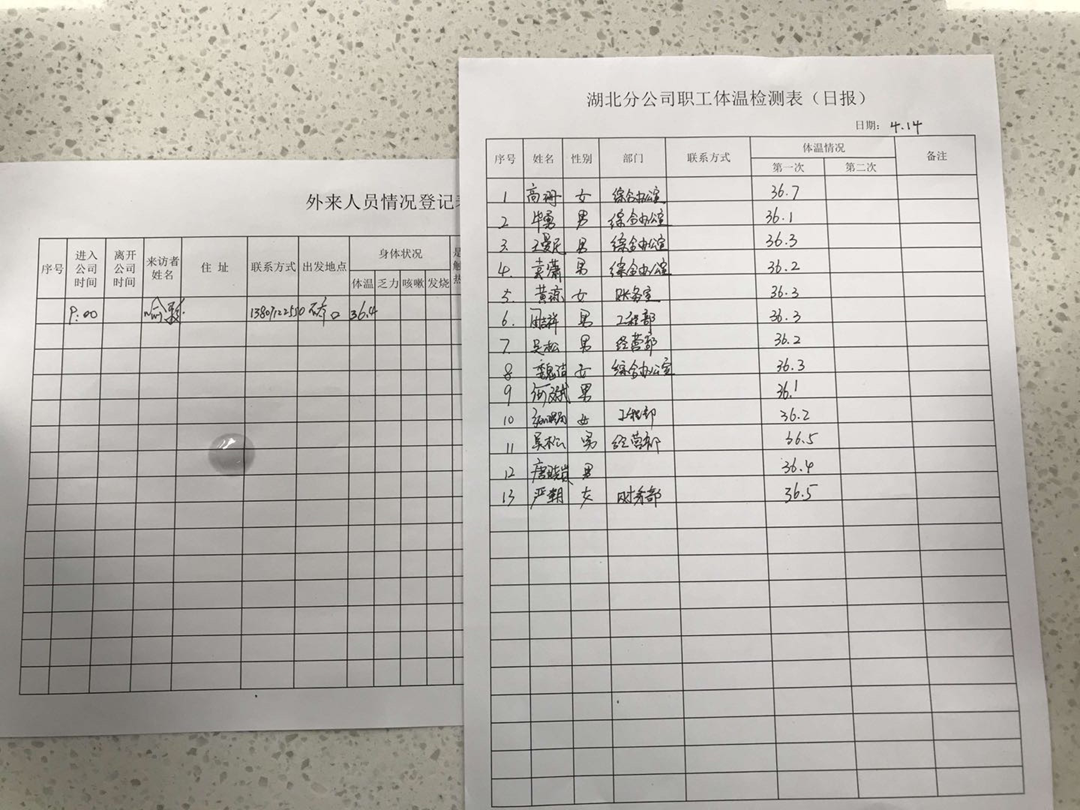 外来人员情况登记
序号 进入公司时间 离开公司时间 来访者姓名 住址 联系方式 出发地点 身体状况
体温 乏力 咳嗽 发烧
9:00 36.4
湖北分公司职工体温检测表（日报）
日期：4.14
序号 姓名 性别 部门 联系方式 体温情况 备注
第一次 第二次
1 高丹 女 综合办公室 36.7
2. 毕勇 男 综合办公室 36.1
3. 男 综合办公室 36.3
4. 袁潇 男 综合办公室 36.2
5. 女 财务室 36.3
6. 男 工程部 36.3
7. 吴松 男 经营部 36.2
8 女 综合办公室 36.3
9 男 36.1
10 女 工程部 36.2
11 吴松 男 经营部 36.5
12 男 36.4
13 女 财务部 36.5